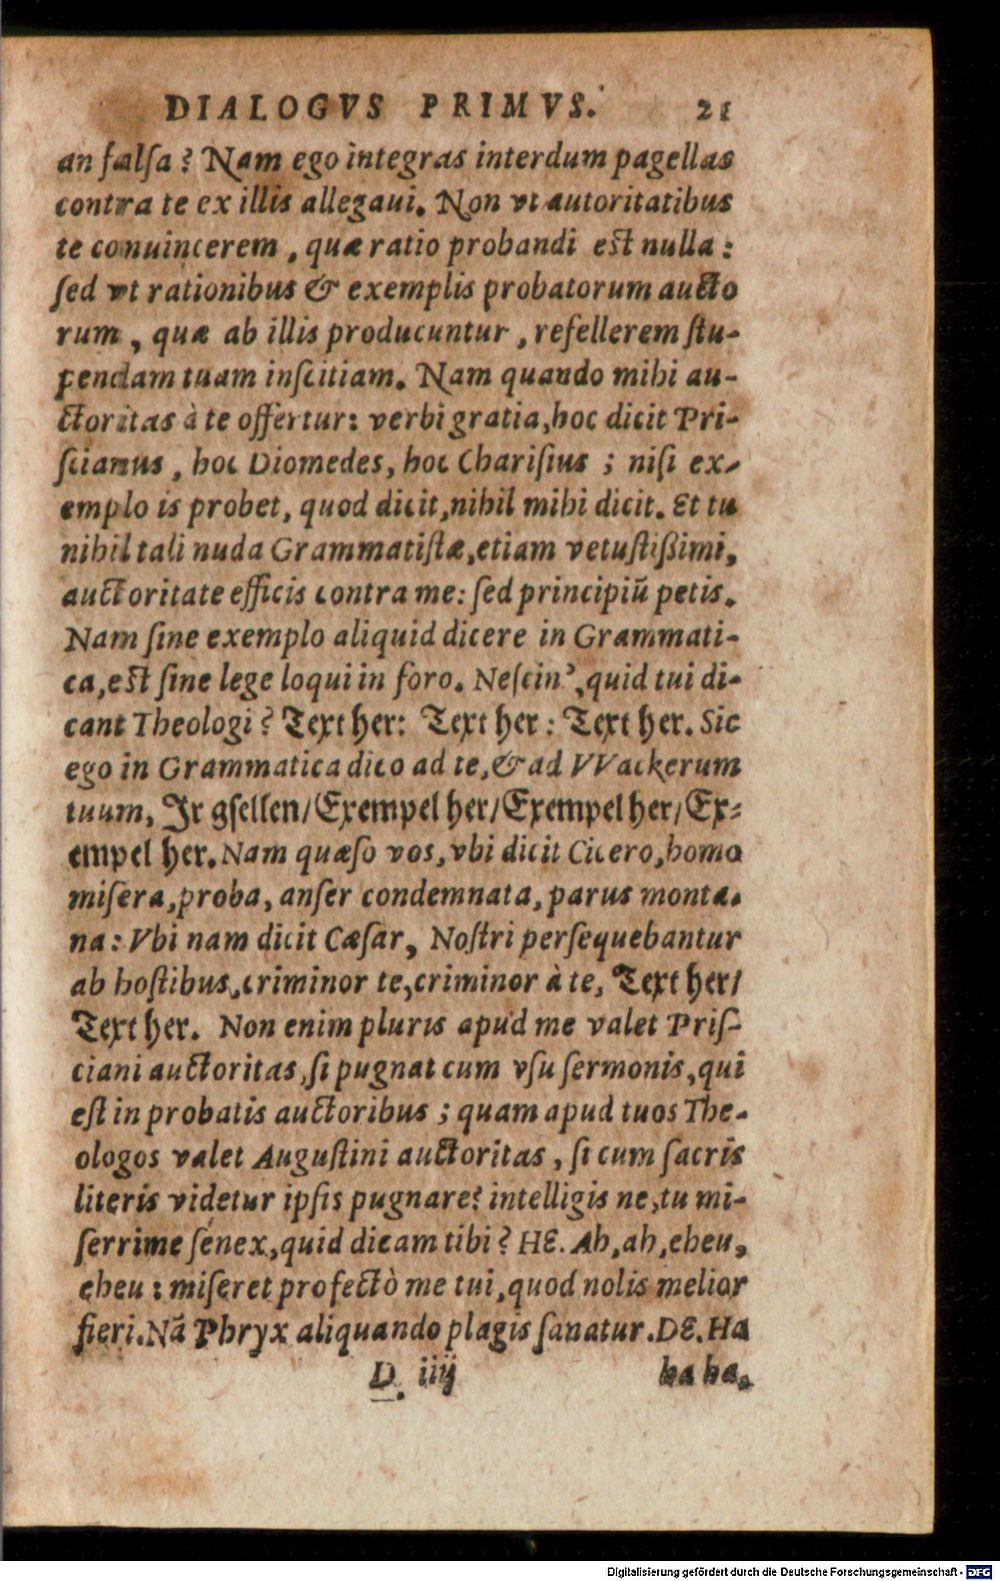 DIALOGVS PRIMVS. 21
an falſa? Nam ego integras interdum pagellas
contra te ex illis allegaui. Non vt autoritatibus
te conuincerem, quæ ratio probandi est nulla:
ſed vt rationibus & exemplis probatorum aucto
rum, quæ ab illis producuntur, refellerem ſtu-
pendam tuam inſcitiam. Nam quando mihi au-
ctoritas à te offertur: verbi gratia, hoc dicit Pri-
ſcianus, hoc Diomedes, hoc Chariſius; niſi ex-
emplo is probet, quod dicit, nihil mihi dicit. Et tu
nihil tali nuda Grammatiſtæ, etiam vetuſtißimi,
auctoritate efficis contra me: ſed principiũ petis.
Nam ſine exemplo aliquid dicere in Grammati-
ca, est ſine lege loqui in foro. Neſcin’, quid tui di-
cant Theologi? Text her: Text her: Text her. Sic
ego in Grammatica dico ad te, & ad VVackerum
tuum, Ir gſellen/ Exempel her/ Exempel her/ Ex-
empel her. Nam quæſo vos, vbi dicit Cicero, homo
miſera, proba, anſer condemnata, parus monta-
na: Vbi nam dicit Cæſar, Noſtri perſequebantur
ab hoſtibus, criminor te, criminor à te, Text her/
Text her. Non enim pluris apud me valet Priſ-
ciani auctoritas, ſi pugnat cum vſu ſermonis, qui
eſt in probatis auctoribus; quam apud tuos The-
ologos valet Auguſtini auctoritas, ſi cum ſacris
literis videtur ipſis pugnare? intelligis ne, tu mi-
ſerrime ſenex, quid dicam tibi? HE. Ah, ah, eheu,
eheu: miſeret profectò me tui, quod nolis melior
fieri. Nã Phryx aliquando plagis ſanatur. DE. Ha
D. iiij ha ha.
Digitalisierung gefördert durch die Deutsche Forschungsgemeinschaft - DFG